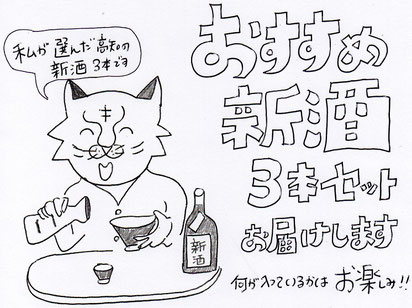 私が選んだ高知の
新酒3本です
おすすめ
新酒
3本セット
お届けします
何が入っているかは お楽しみ!!
キ
新酒